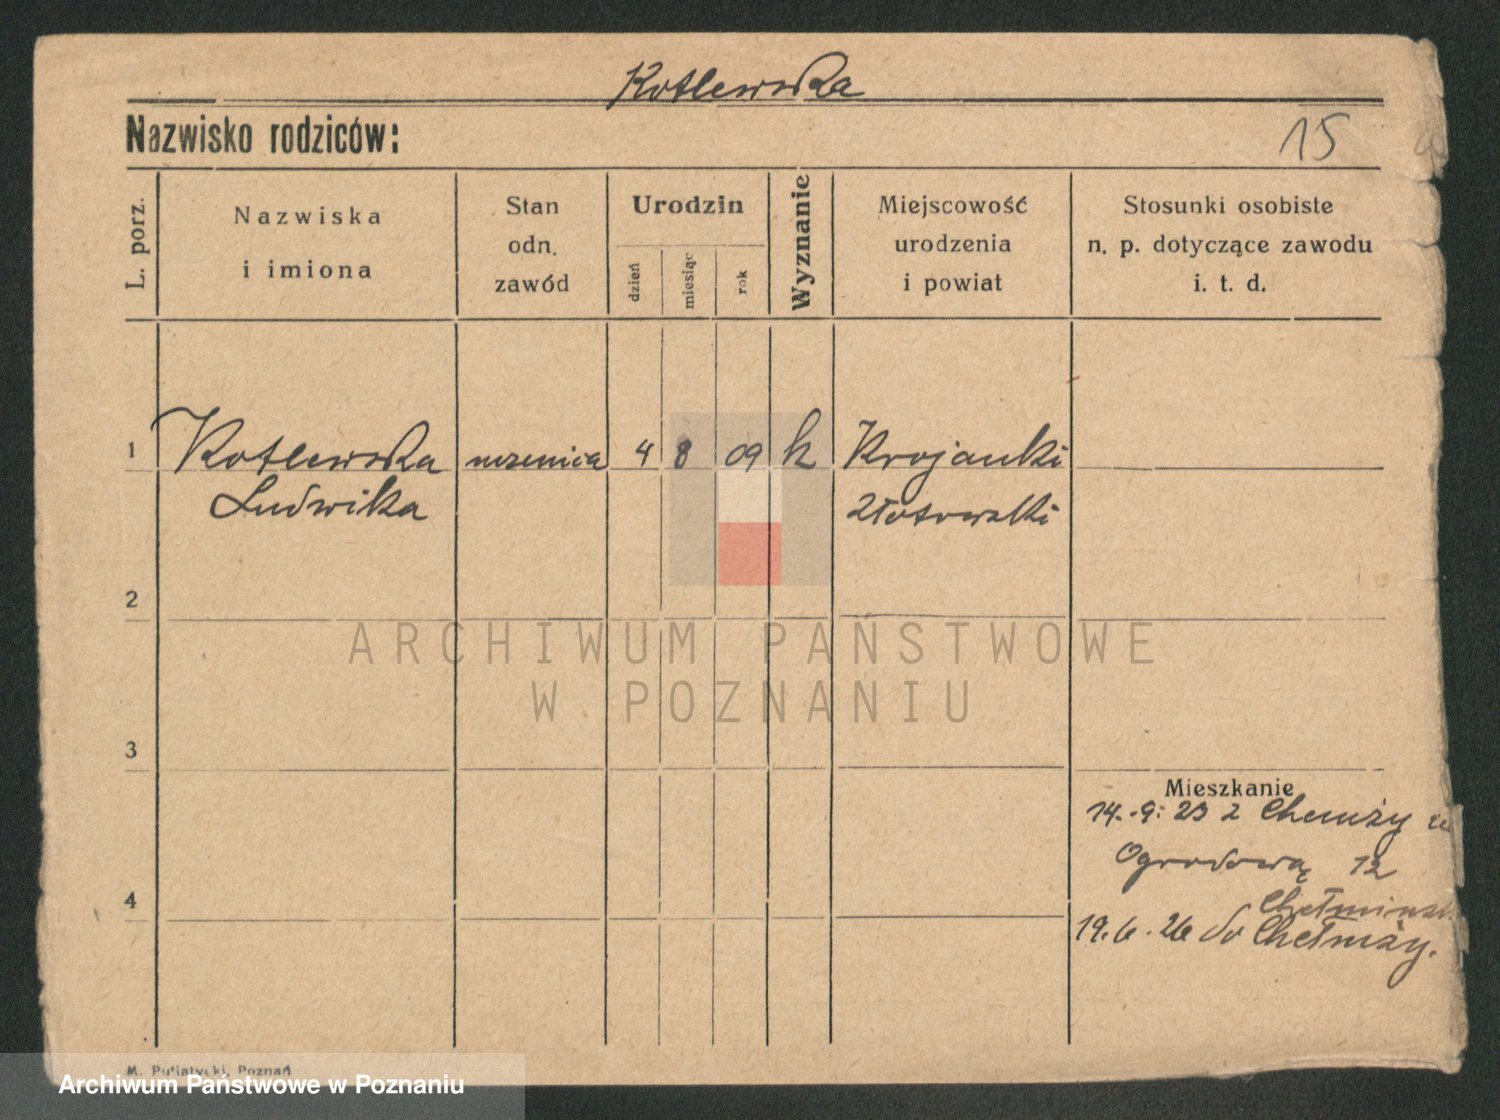 Kotlewska
Nazwisko rodziców:
15
L. porz.
Nazwiska
i imiona
Stan
odn.
zawód
Urodzin
dzień
miesiąc
rok
Wyznanie
Miejscowość
urodzenia
i powiat
Stosunki osobiste
n. p. dotyczące zawodu
i. t. d.
1 Kotlewska uczenica 4 8 09 k Krojanki
Ludwika Złotowski
2
ARCHIWUM PAŃSTWOWE
W POZNANIU
3
Mieszkanie
14.-9: 23 z Chemży
Ogrodową 12
4
19.6.26 do Chełmży.
M. Putiatycki, Poznań
Archiwum Państwowe w Poznaniu